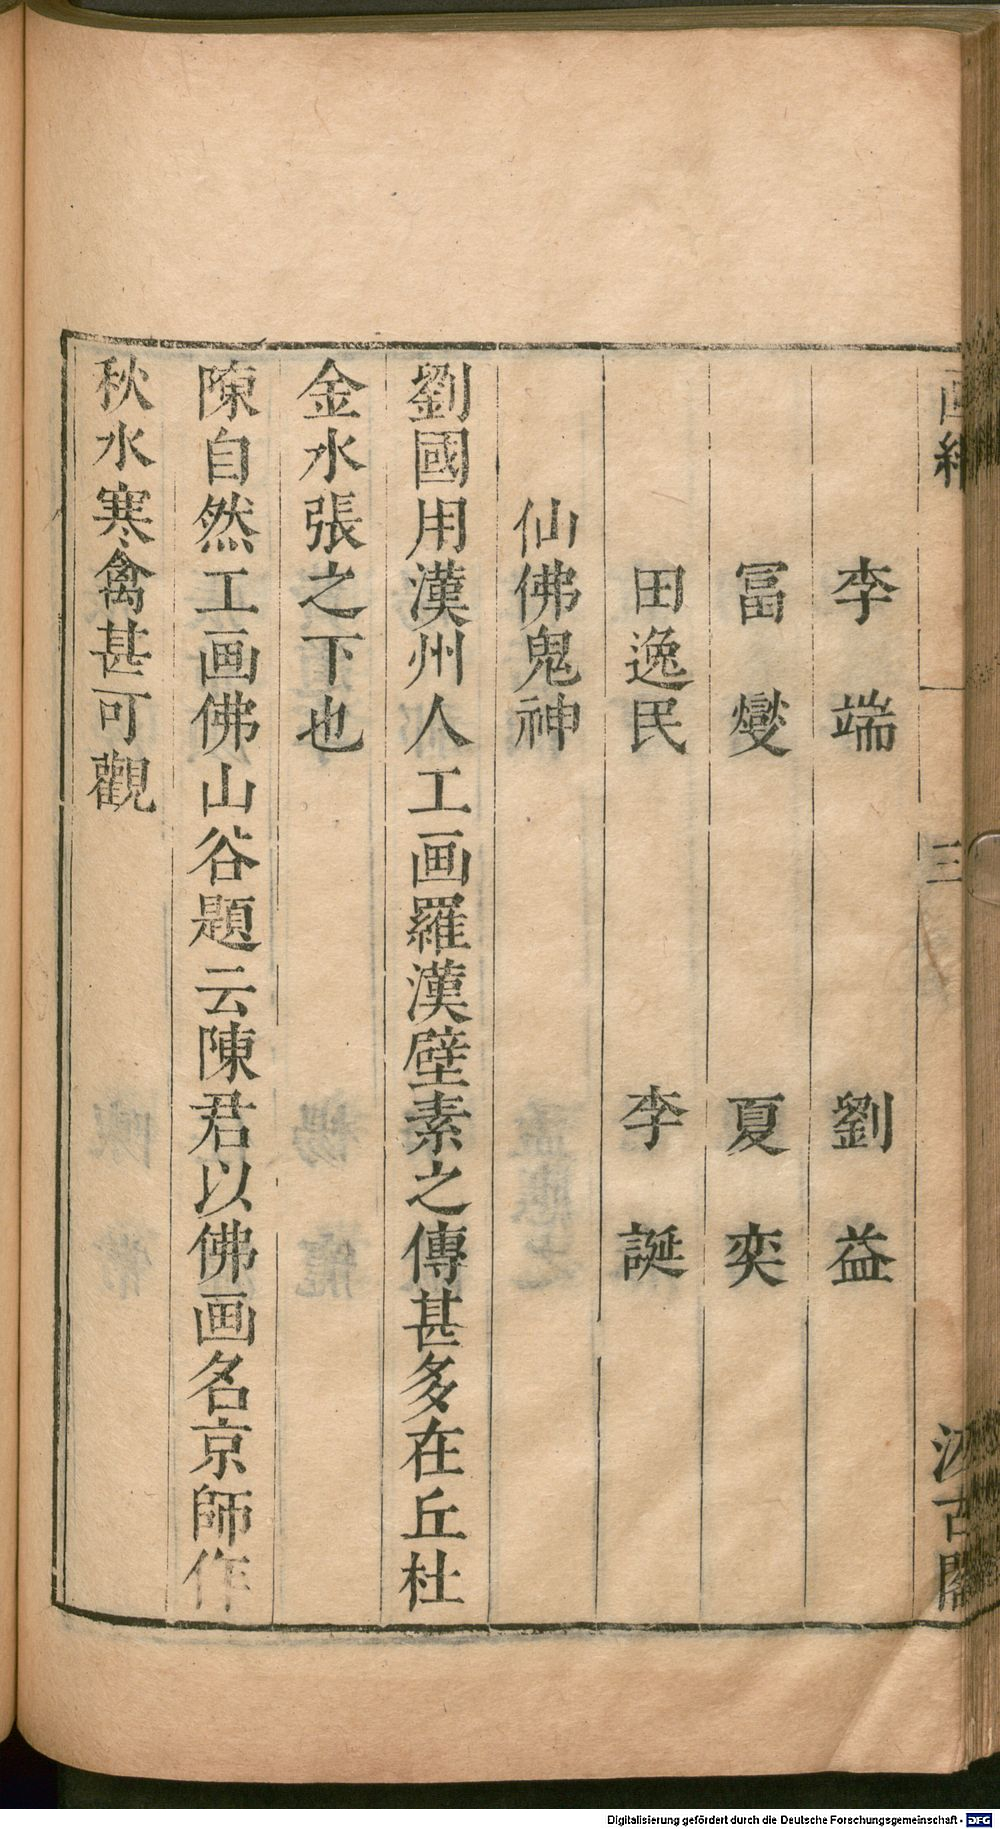 画継 三 汲古閣
李端 劉益
冨燮 夏奕
田逸民 李誕
仙佛鬼神
劉國用漢州人工画羅漢壁素之傳甚多在丘杜
金水張之下也
陳自然工画佛山谷題云陳君以佛画名京師作
秋水寒禽甚可觀
Digitalisierung gefördert durch die Deutsche Forschungsgemeinschaft - DFG